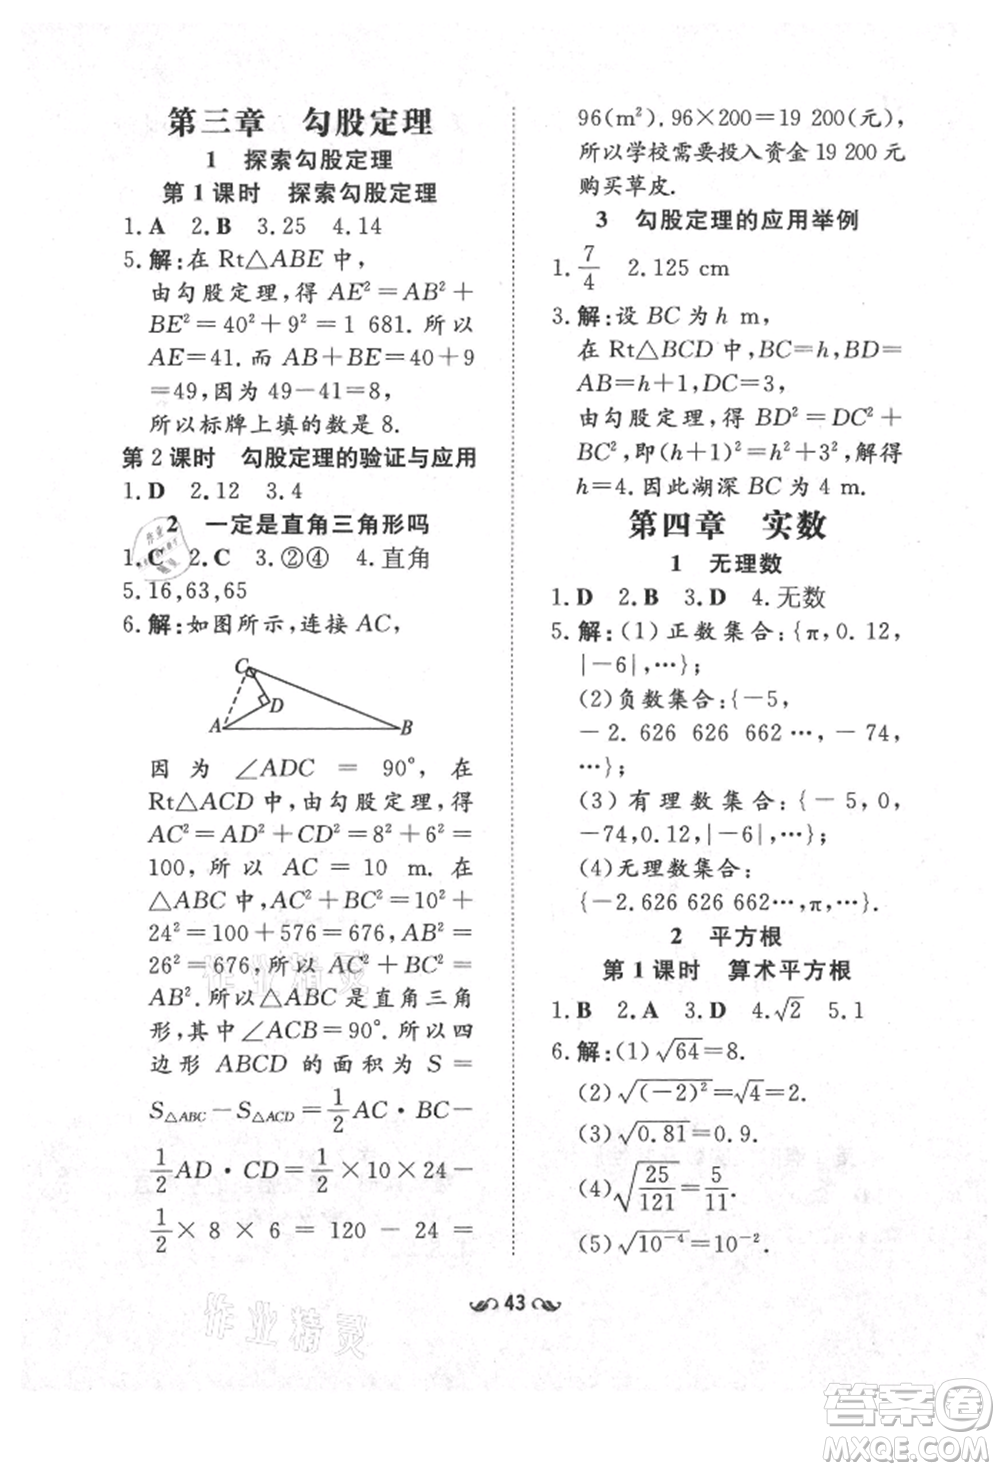 第三章　勾股定理
1　探索勾股定理
第1课时　探索勾股定理
1.A　2.B　3.25　4.14
5.解:在 Rt△ABE 中,
由勾股定理,得 AE²=AB²+
BE²=40²+9²=1 681.所以
AE=41.而 AB+BE=40+9
=49,因为 49-41=8,
所以标牌上填的数是 8.
第2课时　勾股定理的验证与应用
1.D　2.12　3.4
2　一定是直角三角形吗
1.C　2.C　3.②④　4.直角
5.16,63,65
6.解:如图所示,连接 AC,
C
D
A　B
因为 ∠ADC = 90°, 在
Rt△ACD 中,由勾股定理,得
AC²=AD²+CD²=8²+6²=
100, 所以 AC = 10 m. 在
△ABC 中,因为 AC²+BC²=
24²=100+576=676,AB²=
26²=676,所以 AC²+BC²=
AB².所以△ABC是直角三角
形,其中∠ACB=90°.所以四
边形 ABCD 的面积为 S =
S△ABC-S△ACD=1/2 AC·BC-
1/2 AD·CD=1/2×10×24-
1/2 × 8 × 6 = 120 - 24 =
96(m²).96×200=19 200(元),
所以学校需要投入资金 19 200元
购买草皮.
3　勾股定理的应用举例
1.7/4　2.125 cm
3.解:设 BC 为 h m,
在 Rt△BCD 中,BC=h,BD=
AB=h+1,DC=3,
由勾股定理,得 BD²=DC²+
BC²,即(h+1)²=h²+3²,解得
h=4.因此湖深 BC 为 4 m.
第四章　实数
1　无理数
1.D　2.B　3.D　4.无数
5.解:(1)正数集合:{π,0.12,
|-6|,…};
(2)负数集合:{-5,
-2.626 626 662…,-74,
…};
(3)有理数集合:{-5,0,
-74,0.12,|-6|,…};
(4)无理数集合:
{-2.626 626 662…,π,…}.
2　平方根
第1课时　算术平方根
1.B　2.A　3.D　4.√2　5.1
6.解:(1)√64=8.
(2)√(-2)²=√4=2.
(3)√0.81=0.9.
(4)√25/121=5/11.
(5)√10⁻⁴=10⁻².
43
作业精灵
作业精灵
答案圈
MXQE.COM